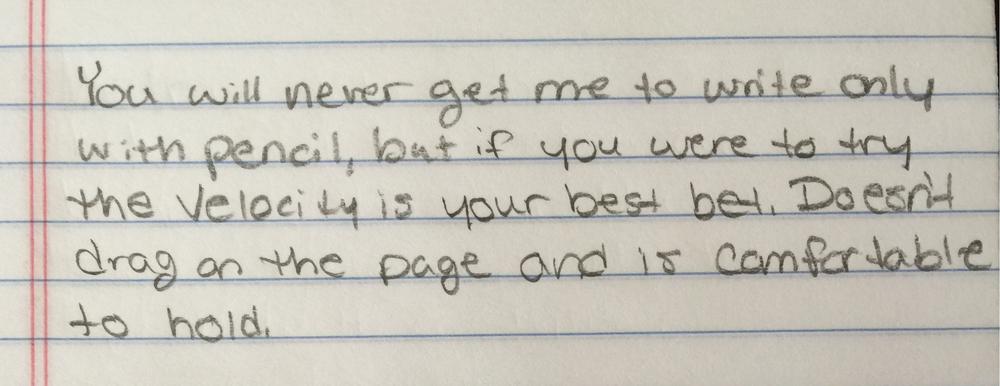 You will never get me to write only
with pencil, but if you were to try
the Velocity is your best bet. Doesn't
drag on the page and is comfortable
to hold.